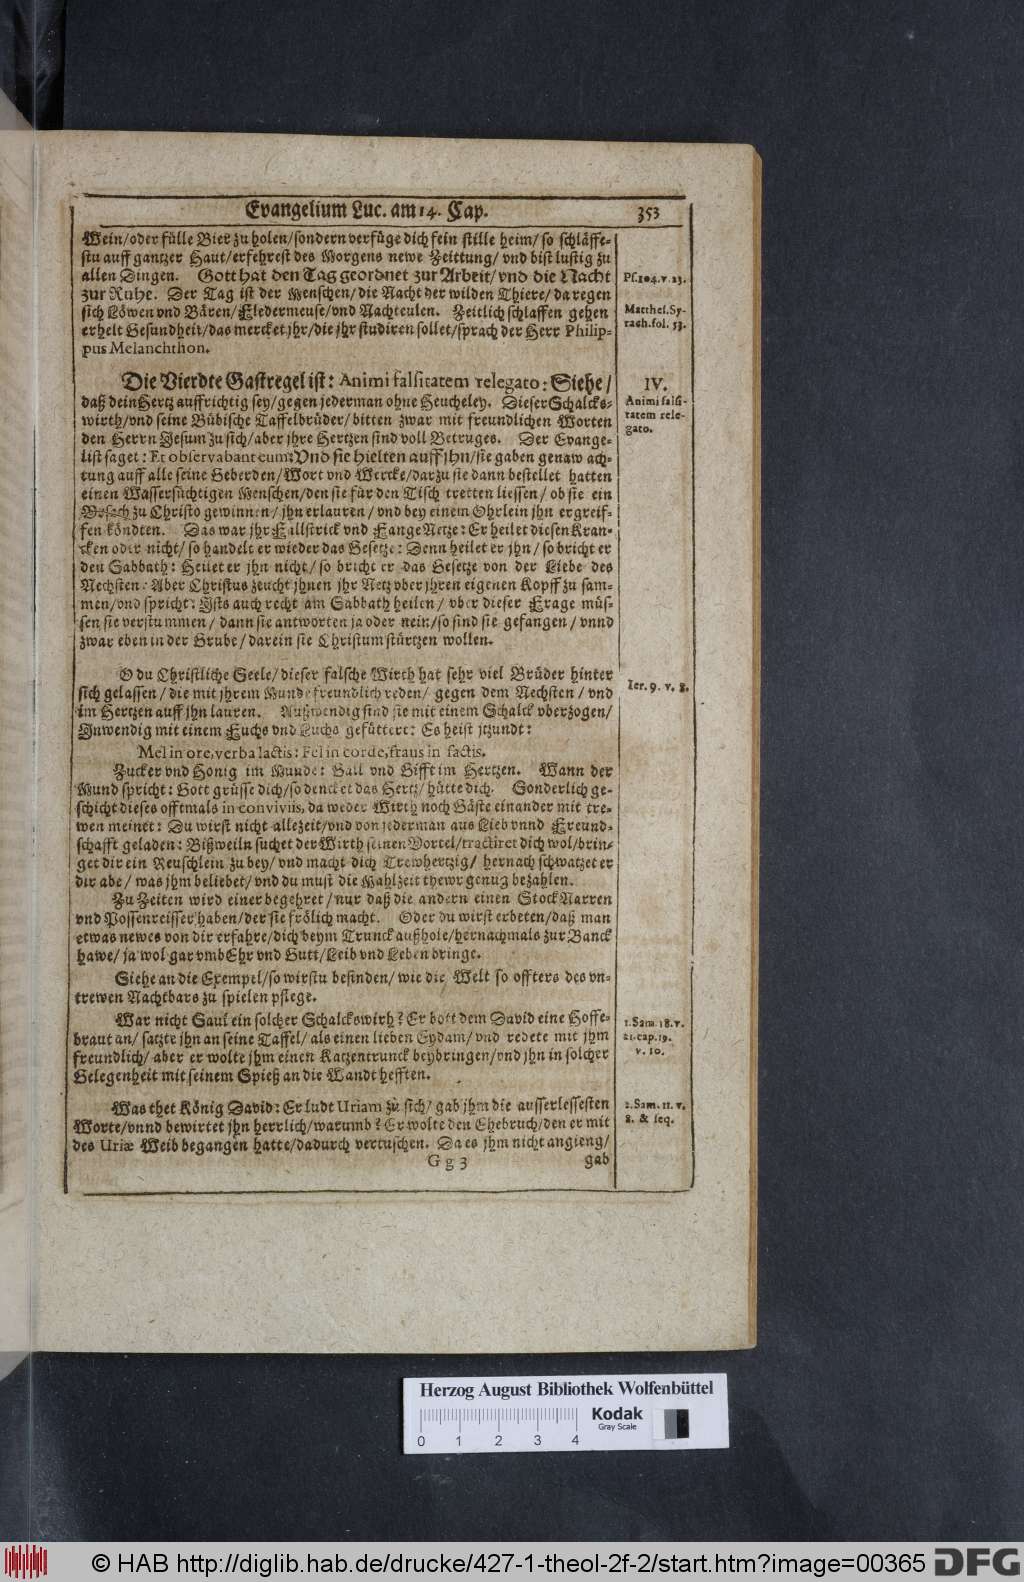 Evangelium Luc. am 14. Cap. 353
Wein/ oder fülle Bier zu holen/ sondern verfüge dich fein stille heim/ so schläffe-
stu auff gantzer Haut/ erfehrest des Morgens newe Zeittung/ vnd bist lustig zu
allen Dingen. Gott hat den Tag geordnet zur Arbeit/ vnd die Nacht
zur Ruhe. Der Tag ist der Menschen/ die Nacht der wilden Thiere/ da regen
sich Löwen vnd Bären/ Fledermeuse/ vnd Nachteulen. Zeitlich schlaffen gehen
erhelt Gesundheit/ das mercket jhr/ die jhr studiren sollet/ sprach der Herr Philip-
pus Melanchthon.
Ps. 104. v. 23.
Matthes. Sy-
rach. fol. 53.
Die Vierdte Gastregel ist: Animi falsitatem relegato: Siehe/
daß dein Hertz auffrichtig sey/ gegen jederman ohne Heucheley. Dieser Schalcks-
wirth/ vnd seine Bübische Taffelbrüder/ bitten zwar mit freundlichen Worten
den Herrn Jesum zu sich/ aber jhre Hertzen sind voll Betruges. Der Evange-
list saget: Et observabant eum: Vnd sie hielten auff jhn/ sie gaben genaw ach-
tung auff alle seine Geberden/ Wort vnd Wercke/ darzu sie dann bestellet hatten
einen Wassersüchtigen Menschen/ den sie für den Tisch tretten liessen/ ob sie ein
Vrsach zu Christo gewinnen/ jhn erlauren/ vnd bey einem Öhrlein jhn ergreif-
fen köndten. Das war jhr Fallstrick vnd Fange Netze: Er heilet diesen Kran-
cken oder nicht/ so handelt er wieder das Gesetze: Denn heilet er jhn/ so bricht er
den Sabbath: Heilet er jhn nicht/ so bricht er das Gesetze von der Liebe des
Nechsten: Aber Christus zeucht jhnen jhr Netz vber jhren eigenen Kopff zu sam-
men/ vnd spricht: Ists auch recht am Sabbath heilen/ vber dieser Frage müs-
sen sie verstummen/ dann sie antworten ja oder nein/ so sind sie gefangen/ vnnd
zwar eben in der Grube/ darein sie Christum stürtzen wollen.
IV.
Animi falsi-
tatem rele-
gato.
O du Christliche Seele/ dieser falsche Wirth hat sehr viel Brüder hinter
sich gelassen/ die mit jhrem Munde freundlich reden/ gegen dem Nechsten/ vnd
im Hertzen auff jhn lauren. Außwendig sind sie mit einem Schalck vberzogen/
Inwendig mit einem Fuchs vnd Luchs gefüttert: Es heist jtzundt:
Ier. 9. v. 8.
Mel in ore, verba lactis: Fel in corde, fraus in factis.
Zucker vnd Honig im Munde: Gall vnd Gifft im Hertzen. Wann der
Mund spricht: Gott grüsse dich/ so dencket das Hertz/ hütte dich. Sonderlich ge-
schicht dieses offtmals in conviviis, da weder Wirth noch Gäste einander mit tre-
wen meinet: Du wirst nicht allezeit/ vnd von jederman aus Lieb vnnd Freund-
schafft geladen: Bißweiln suchet der Wirth seinen Vortel/ tractiret dich wol/ brin-
get dir ein Reuschlein zu bey/ vnd macht dich Trewhertzig/ hernach schwatzet er
dir abe/ was jhm beliebet/ vnd du must die Mahlzeit thewr genug bezahlen.
Zu Zeiten wird einer begehret/ nur daß die andern einen Stock Narren
vnd Possenreisser haben/ der sie frölich macht. Oder du wirst erbeten/ daß man
etwas newes von dir erfahre/ dich beym Trunck außhole/ hernachmals zur Banck
hawe/ ja wol gar vmb Ehr vnd Gutt/ Leib vnd Leben bringe.
Siehe an die Exempel/ so wirstu befinden/ wie die Welt so offters des vn-
trewen Nachtbars zu spielen pflege.
War nicht Saul ein solcher Schalckswirh? Er bott dem David eine Hoffe-
braut an/ satzte jhn an seine Taffel/ als einen lieben Eydam/ vnd redete mit jhm
freundlich/ aber er wolte jhm einen Katzentrunck beybringen/ vnd jhn in solcher
Gelegenheit mit seinem Spieß an die Wandt hefften.
1. Sam. 18. v.
21. cap. 19.
v. 10.
Was thet König David: Er ludt Uriam zu sich/ gab jhm die ausserlessesten
Worte/ vnnd bewirtet jhn herrlich/ warumb? Er wolte den Ehebruch/ den er mit
des Uriæ Weib begangen hatte/ dadurch vertuschen. Da es jhm nicht angieng/
2. Sam. 11. v.
8. & seq.
G g 3 gab
Herzog August Bibliothek Wolfenbüttel
Kodak
Gray Scale
0 1 2 3 4
© HAB http://diglib.hab.de/drucke/427-1-theol-2f-2/start.htm?image=00365 DFG